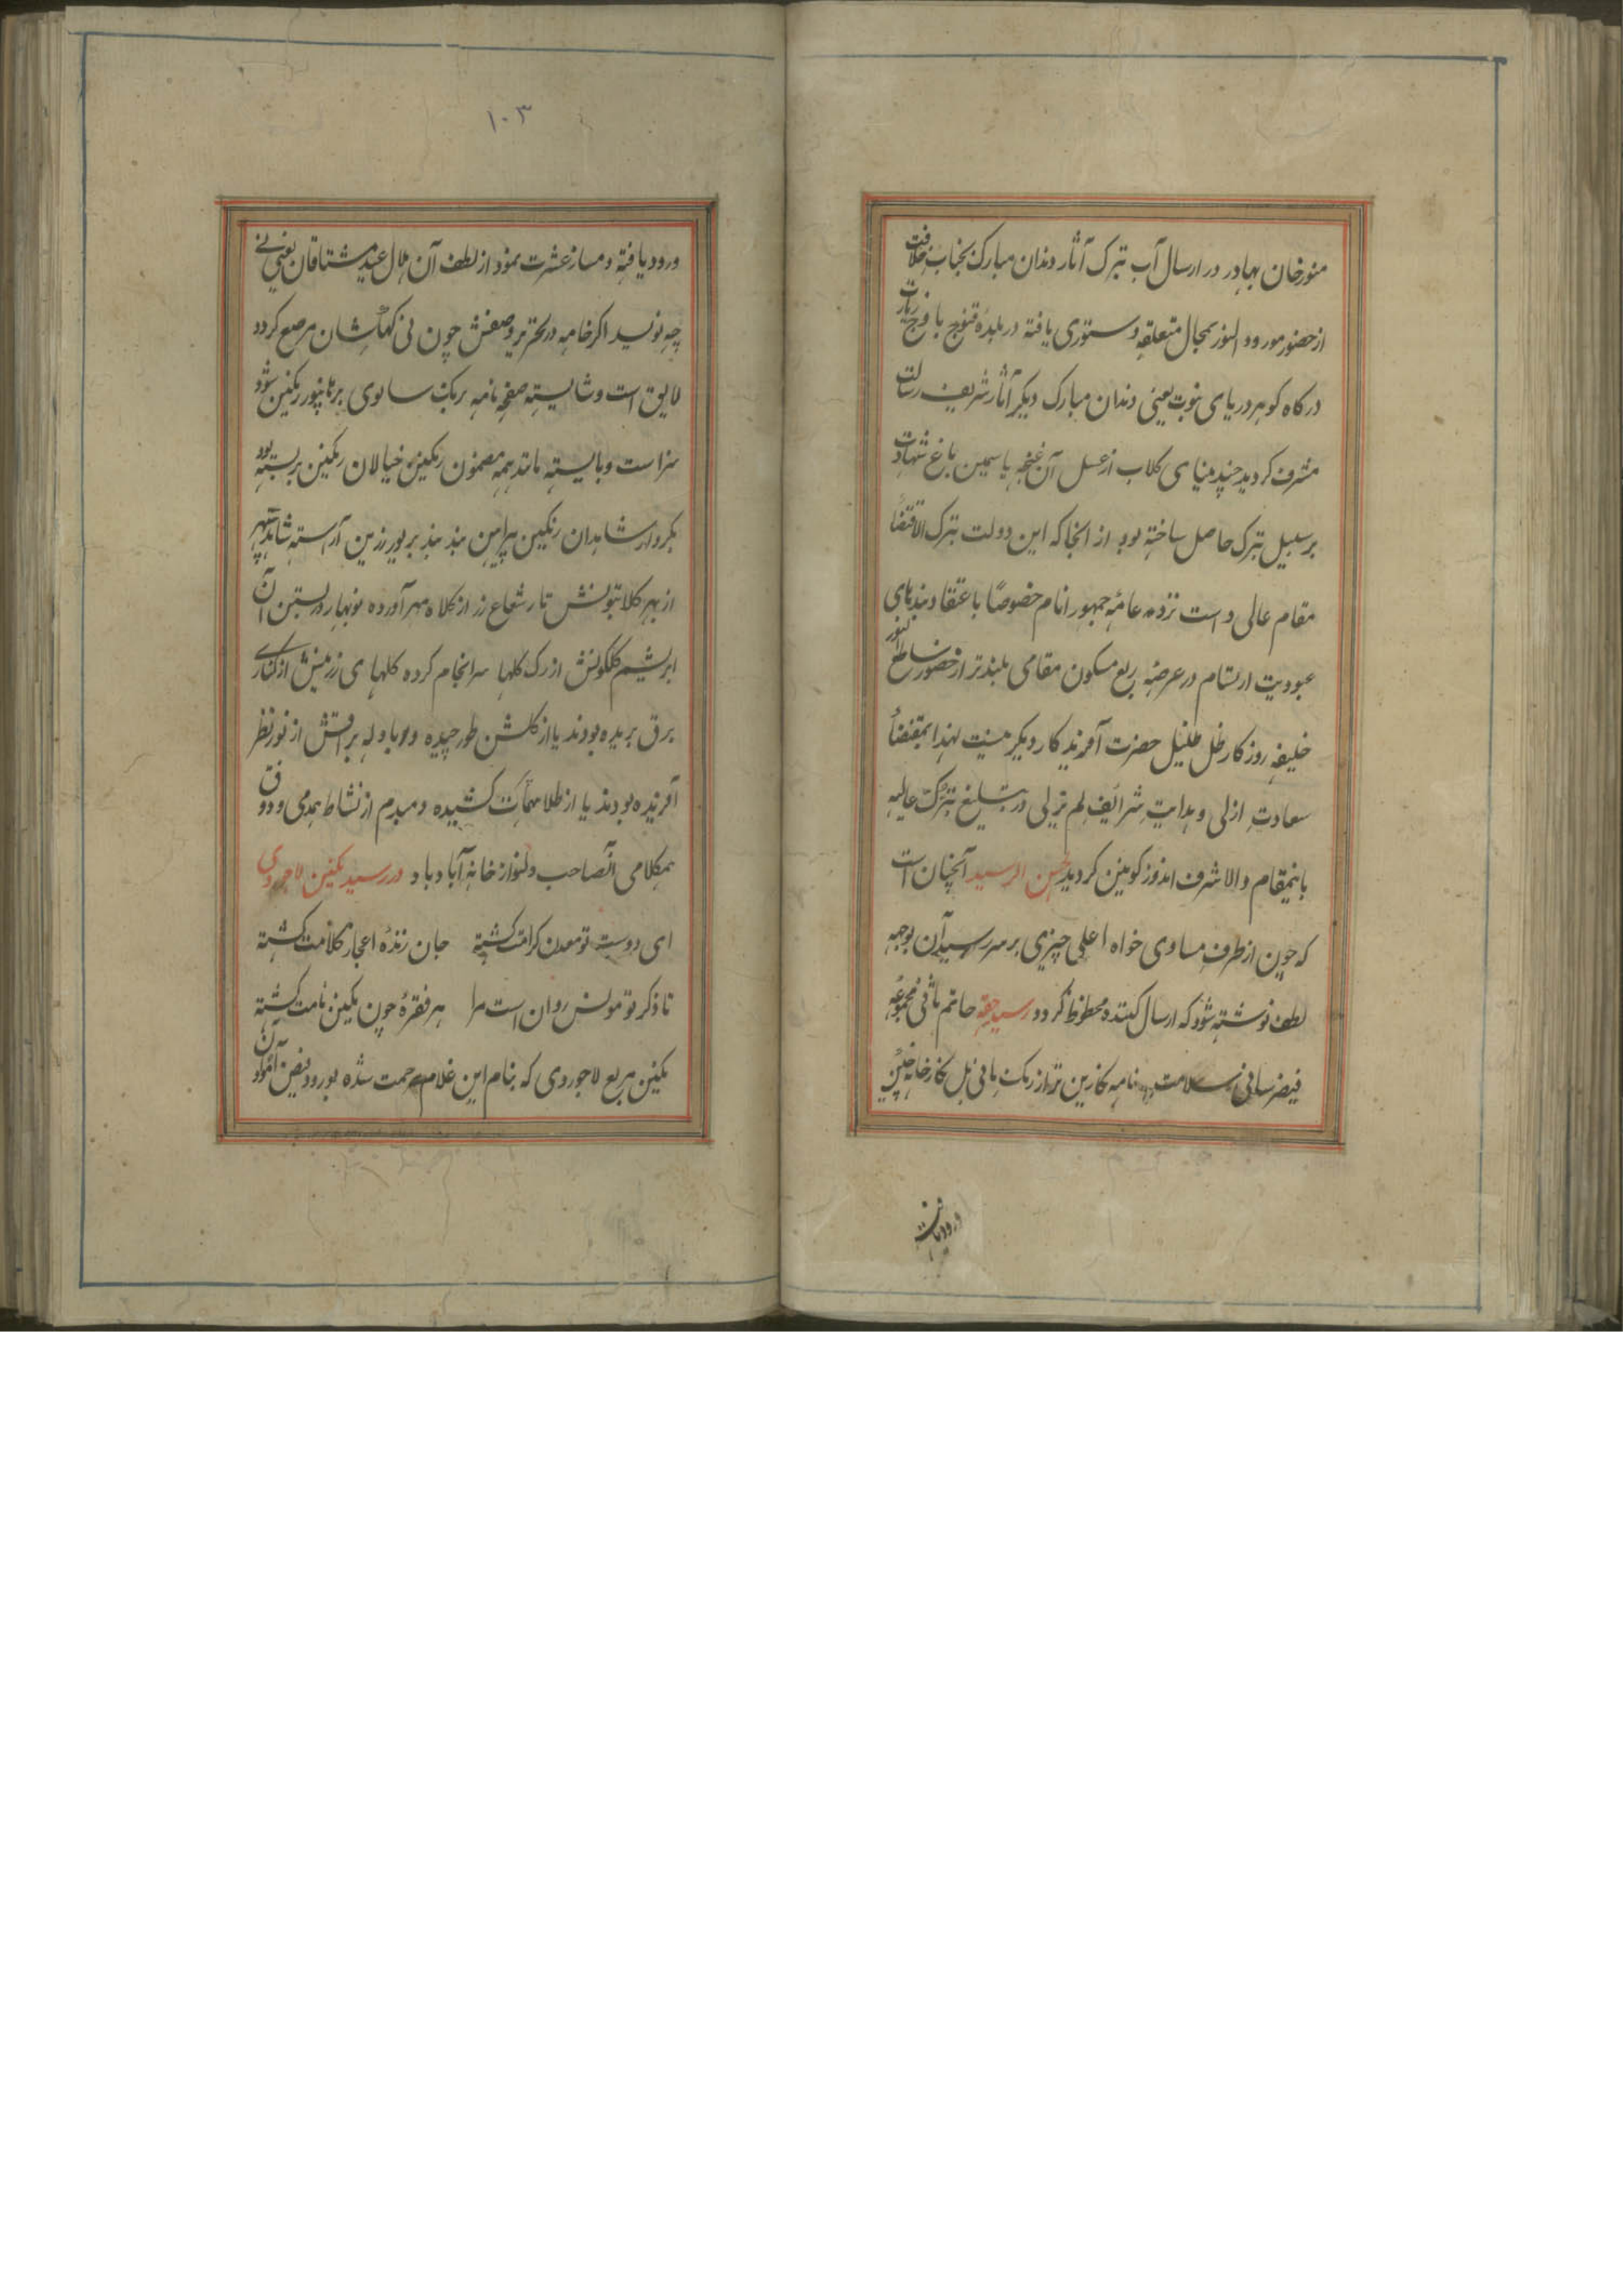 منورخان بهادر در ارسال آب تبرک آثار دندان مبارک بجناب خلافت
از حضور مورد والنور بمحال متعلقه دستوری یافته در بلده قنوج با وج زیارت
درکاه کوهر دریای نبوت یعنی دندان مبارک دیکر آثار شریف رسالت
مشرف کردید چند مینای کلاب از غسل آن غنچه یاسمین باغ شهادت
بر سبیل تبرک حاصل ساخته بود از انجا که این دولت تبرک الاقتضا
مقام عالی است نزد عامه جمهور انام خصوصًا باعتقاد بندهای
عبودیت ارتسام در عرصه ربع مسکون مقامی بلندتر از حضور ساطع النور
خلیفه روزکار ظل ظلیل حضرت آفریدکار دیکر نیست لهذا بمقتضاء
سعادت ازلی و هدایت شرائف لم یزلی در تبلیغ تبرک عالیه
باینمقام والا شرف اندوز کونین کردید حسن الرسید آنچنان است
که چون از طرف مساوی خواه اعلی چیزی برسد رسید آن بوجه
لطف نوشته شود که ارسال کننده محظوظ کردد رسید حقه حاتم ثانی مجموعه
فیض رسانی سلامت نامه نازین تر از رنک مانی بل کارخانه چین
ورود یافته
۱۰۳
ورود یافته و ساز عشرت نمود از لطف آن هلال عید مشتاقان یعنی نی
چه نویسد اکر خامه در تحریر وصفش چون نی کهکشان مرصع کردد
لایق است و شایسته صفحه نامه برنک سالوی برهانپور رنکین شود
سزاست و بایسته باند همه مضمون رنکین خیالان رنکین بر بسته بود
بکردار شاهدان رنکین پیراهن بند بند بر یور زرین آراسته شاید سپهر
از بهر کلابتونش تار شعاع زر از کلاه مهر آورده نوبهار در بستن آن
ابریشم کلکونش از رک کلها سرانجام کرده کلهای زرینش از کناری
برق بریده بودند یا از کلشن طور چیده و بادله براقش از نور نظر
آفریده بودند یا از طلا مهتاب کشیده دمبدم از نشاط همدمی و ذوق
همکلامی آنصاحب دلنواز خانه آباد باد در رسید نکین لاجوردی
ای دوست تو معدن کرامت کشته جان زنده اعجاز کلامت کشته
تا ذکر تو مونس روان است مرا هر فقره چون نکین نامت کشته
نکین مربع لاجوردی که بنام این غلام مرحمت شده بورود فیض آمود آن